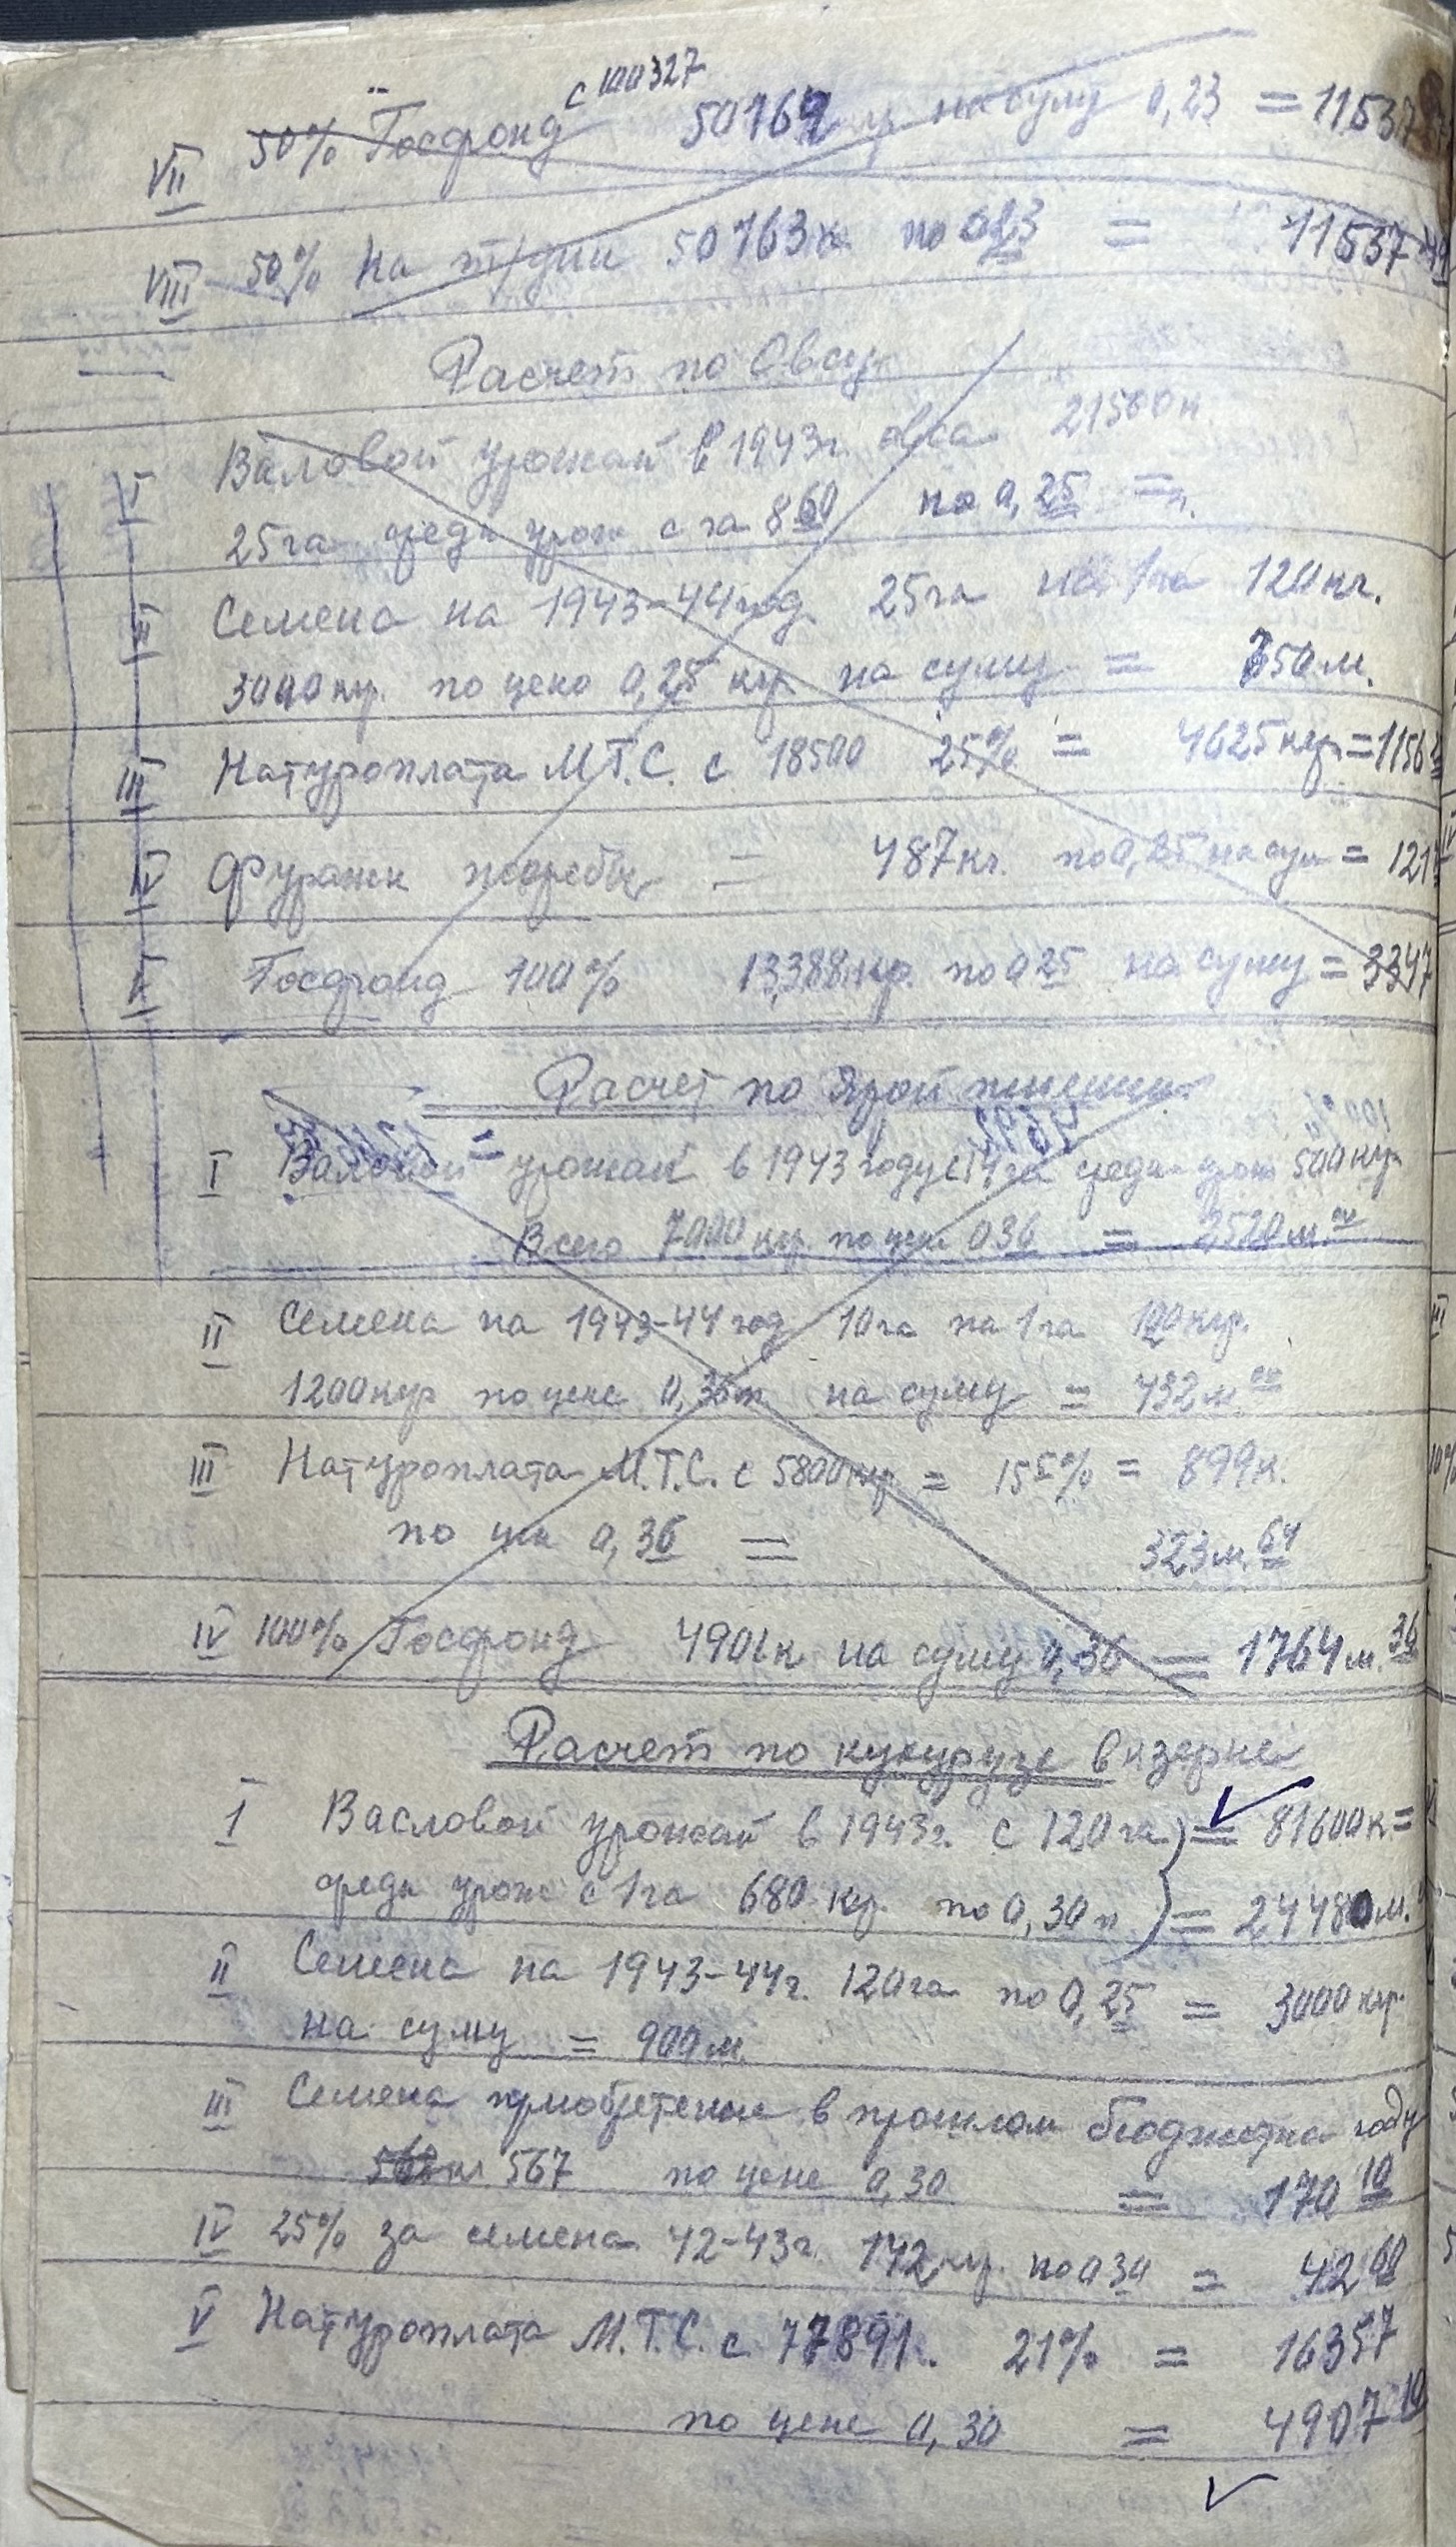 с 100327
VII 50% Госфонд 50164 ц на суму 0,23 = 11537
VIII 50% на т/дни 50163к. по 023 = 11537
Расчет по Овсу
I Валовой урожай в 1943г. овса 21500к
25га средн урож с га 860 по 0,25 =
II Семена на 1943-44год 25га на 1га 120кг.
3000кгр. по цене 0,25 кгр на суму = 750м.
III Натуроплата М.Т.С. с 18500 25% = 4625кгр. = 1156
IV Фуражн потребн = 487кг. по 0,25 на сум = 121
V Госфонд 100% 13,388кгр. по 025 на суму = 3347
Расчет по Ярой пшениц
I Валовой урожай в 1943 году с 14 га средн урож 500кгр
Всего 7000 кгр. по цен 036 = 2520м.
II Семена на 1943-44 год 10га на 1га 120кгр.
1200кгр по цене 0,36 на суму = 432м.
III Натуроплата М.Т.С. с 5800кгр = 15 5% = 899к.
по цен 0,36 = 323м. 64
IV 100% Госфонд 4901к на суму 0,36 = 1764м. 36
Расчет по кукурузе в кзерне
I Васловой урожай в 1943г. с 120га = 81600к =
средн урож с 1га 680 кгр. по 0,30 = 24480м.
II Семена на 1943-44г. 120га по 0,25 = 3000кгр.
на суму = 900м.
III Семена приобретенн в прошлом бюджетна году
568кг 567 по цене 0,30 = 170 10
IV 25% за семена 42-43г. 142кгр. по 030 = 42 60
V Натуроплата М.Т.С. с 77891. 21% = 16357
по цене 0,30 = 4907 10